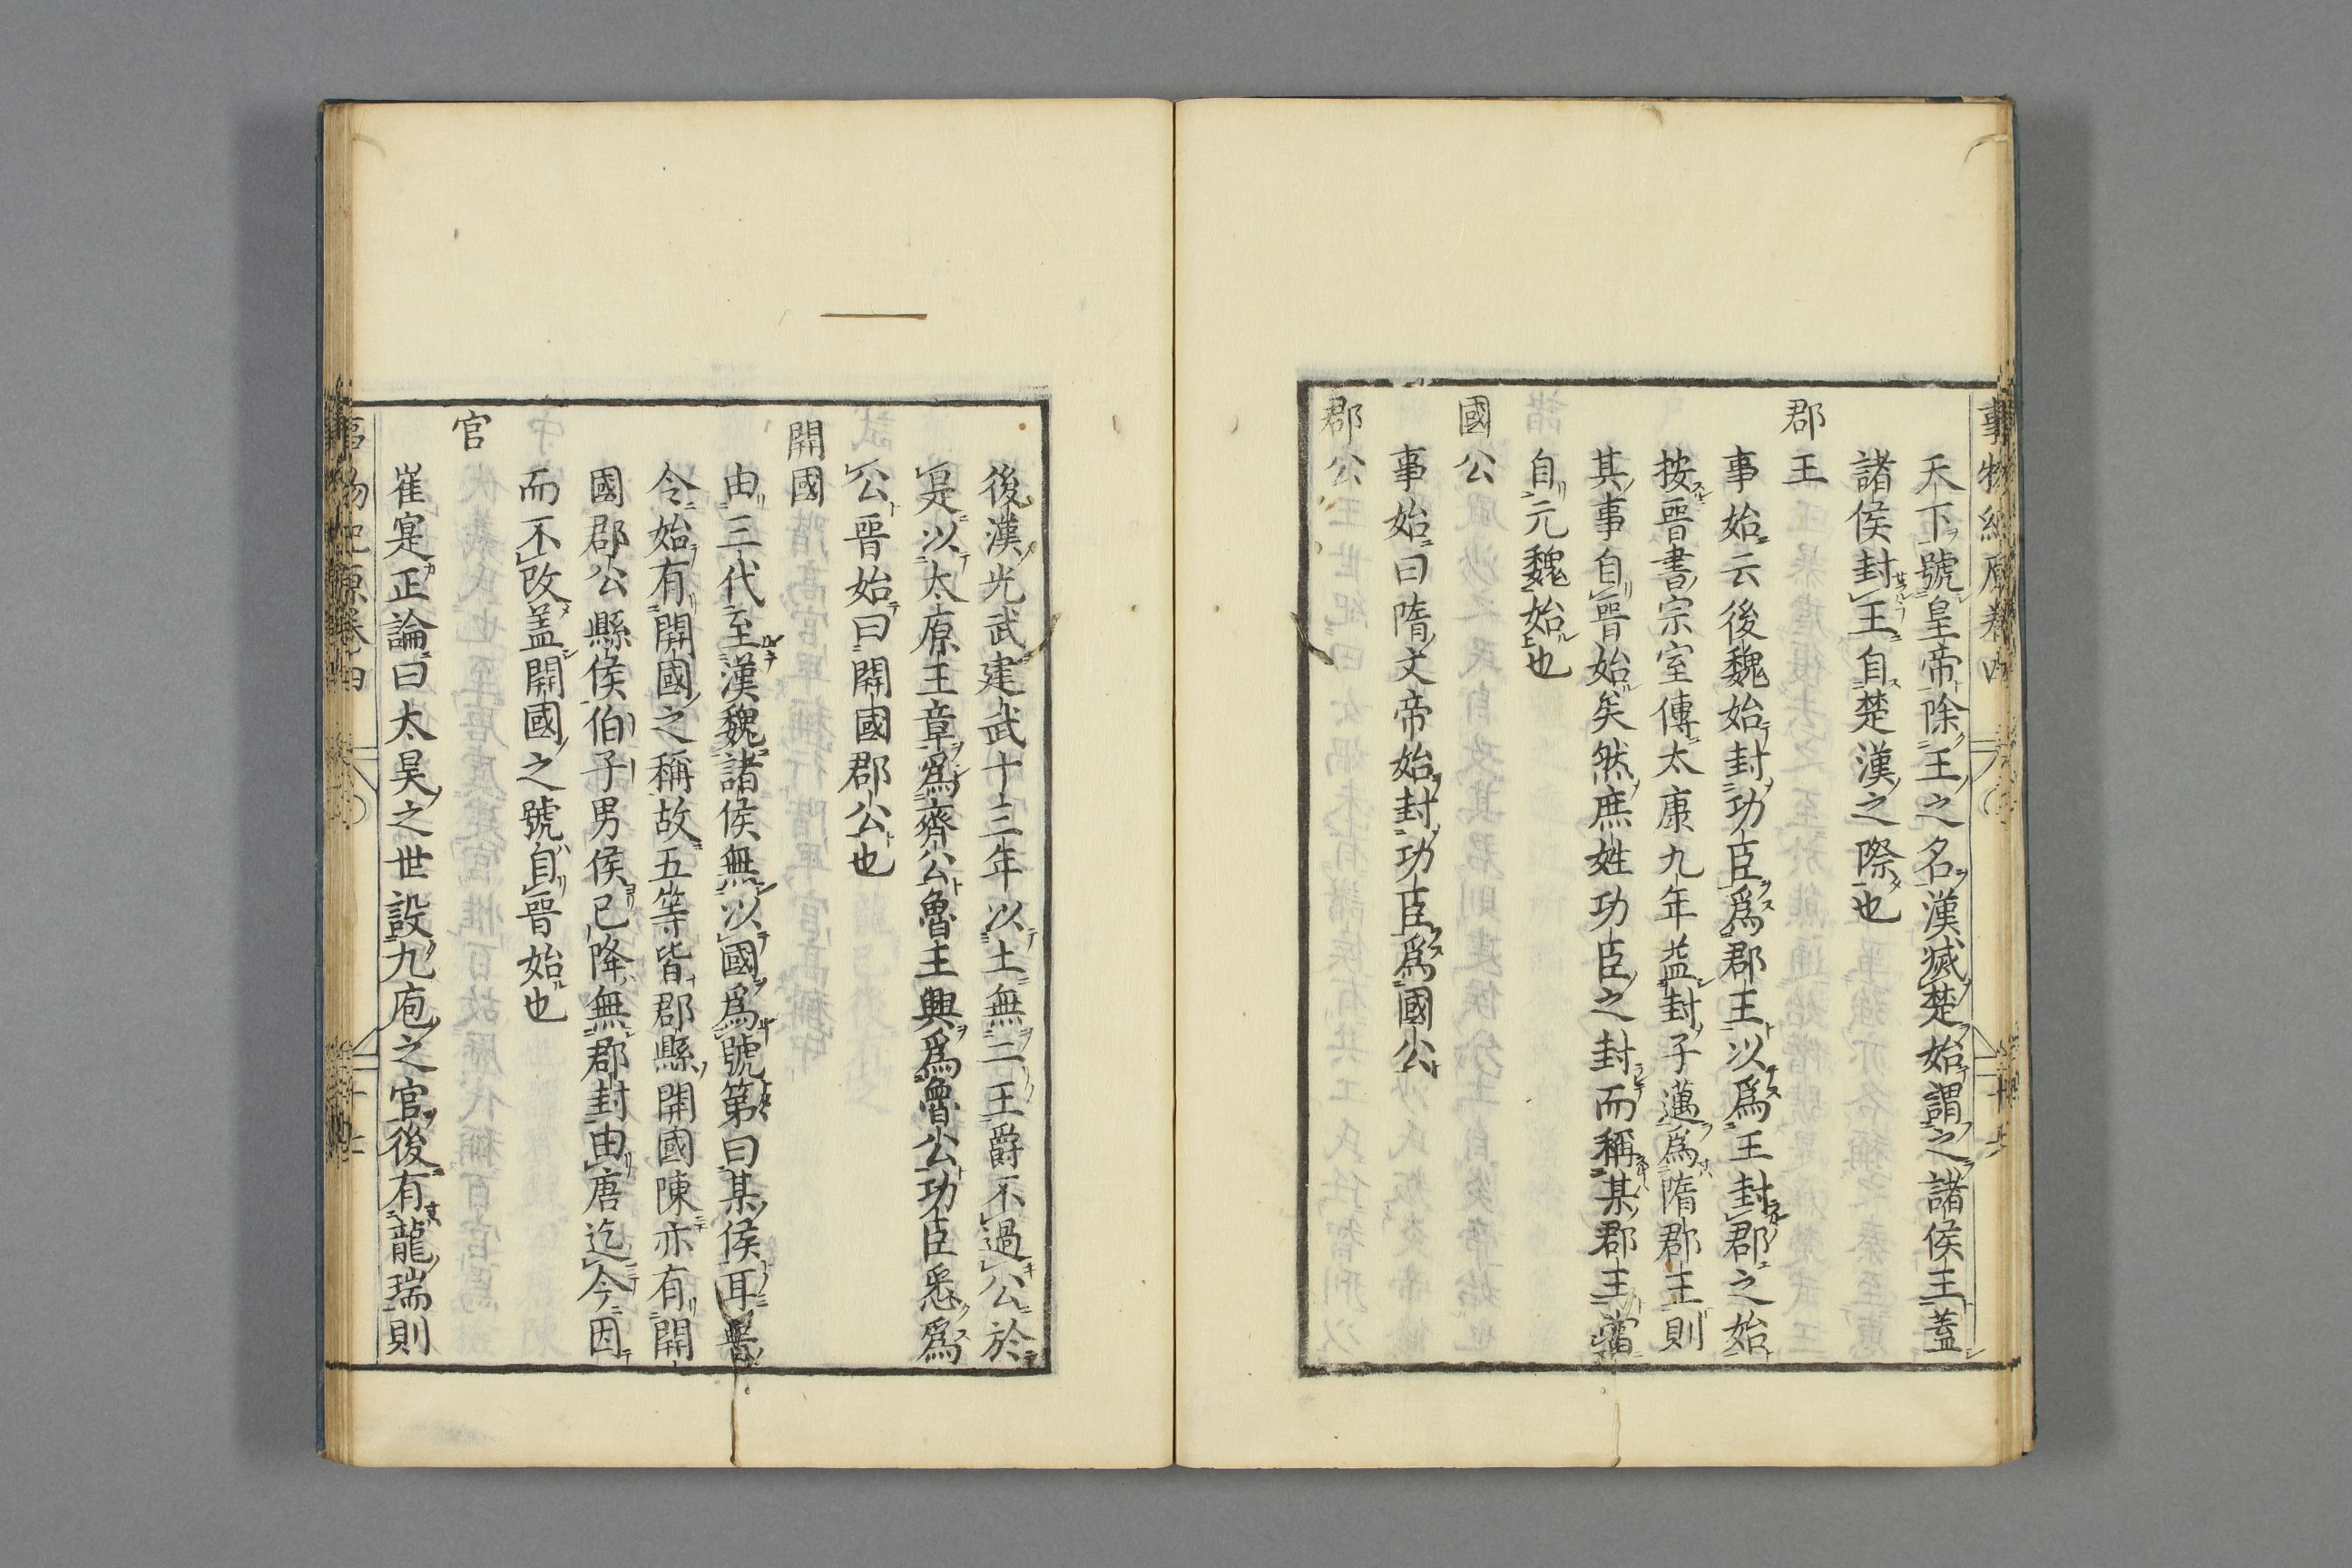 事物紀原卷四
天下號皇帝除王之名漢滅楚始謂之諸侯王蓋
諸侯封王自楚漢之際也
郡王
事始云後魏始封功臣爲郡王以爲王封郡之始
按晉書宗室傳太康九年益封子邁爲隋郡王則
其事自晉始矣然庶姓功臣之封而稱某郡王當
自元魏始也
國公
事始曰隋文帝始封功臣爲國公
郡公
後漢光武建武十三年以土無二王爵不過公於
是以太原王章爲齊公魯王興爲魯公功臣悉爲
公晉始曰開國郡公也
開國
由三代至漢魏諸侯無以國爲號第曰某侯耳晉
令始有開國之稱故五等皆郡縣開國陳亦有開
國郡公縣侯伯子男侯已降無郡封由唐迄今因
而不改蓋開國之號自晉始也
官
崔寔正論曰太昊之世設九庖之官後有龍瑞則
事物紀原卷四